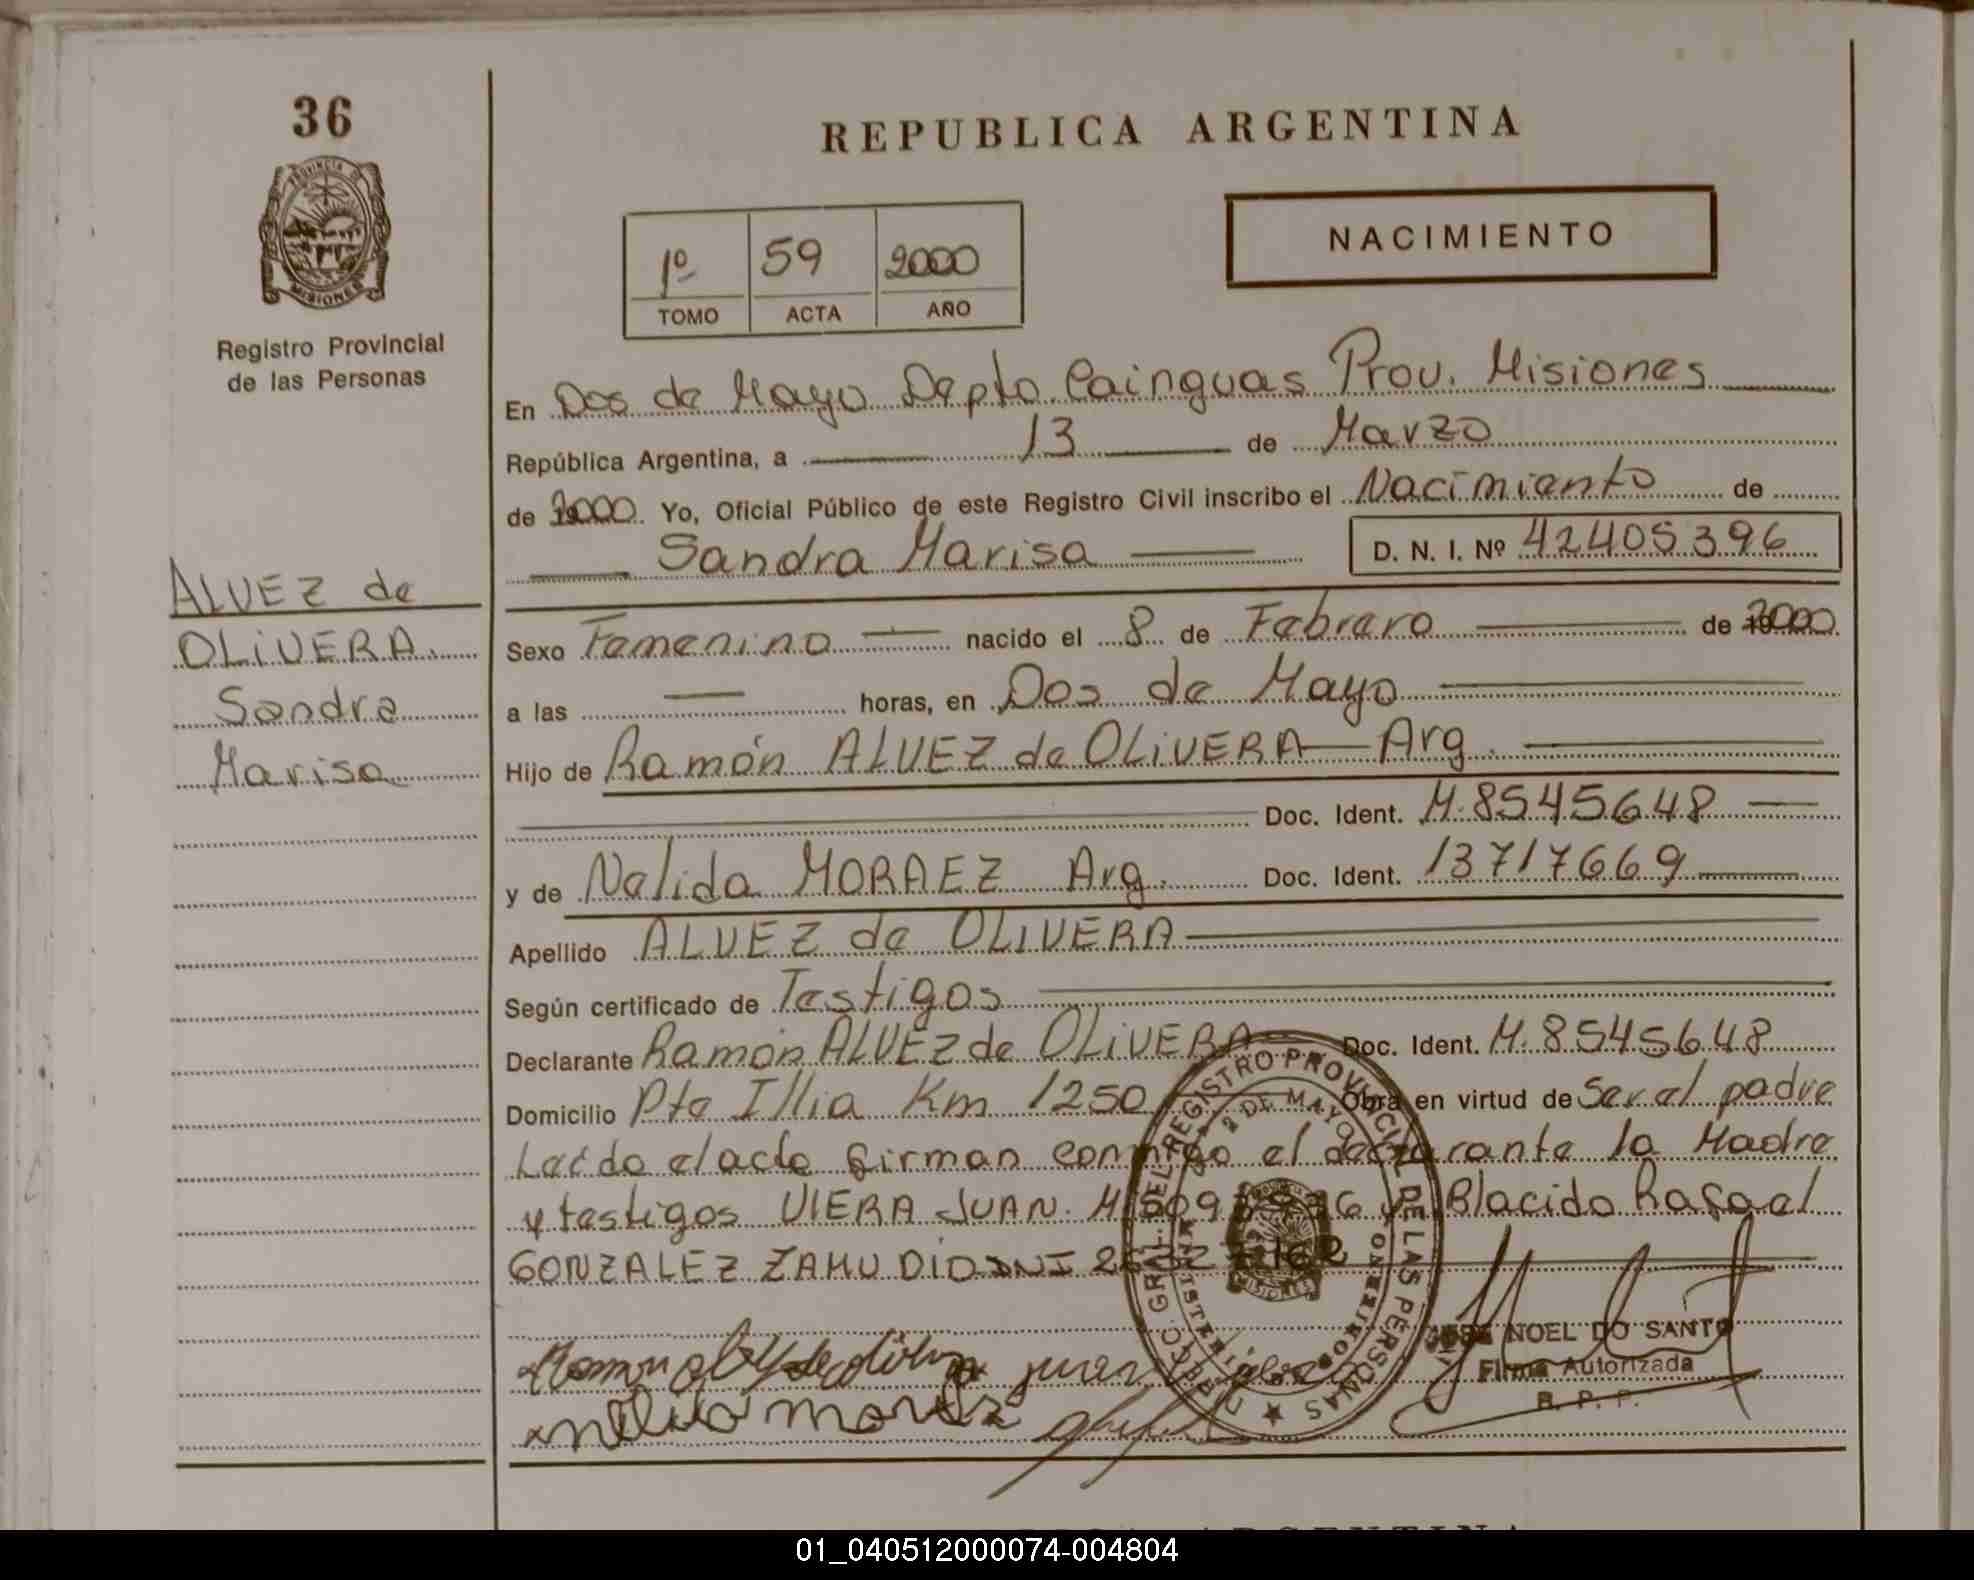 36
PROVINCIA DE
MISIONES
Registro Provincial
de las Personas
ALVEZ de
OLIVERA.
Sandra
Marisa
REPUBLICA ARGENTINA
1º 59 2000
TOMO ACTA AÑO
NACIMIENTO
En Dos de Mayo Depto Cainguas Prov. Misiones
República Argentina, a 13 de Marzo
de 2000. Yo, Oficial Público de este Registro Civil inscribo el Nacimiento de
Sandra Marisa D. N. I. Nº 42405396
Sexo Femenino nacido el 8 de Febrero de 2000
a las — horas, en Dos de Mayo
Hijo de Ramón ALVEZ de OLIVERA — Arg.
Doc. Ident. M.8545648
y de Nelida MORAEZ Arg. Doc. Ident. 13717669
Apellido ALVEZ de OLIVERA
Según certificado de Testigos
Declarante Ramón ALVEZ de OLIVERA Doc. Ident. M.8545648
Domicilio Pte Illia Km 1250 Obra en virtud de Ser el padre
Leído el acto firman conmigo el declarante la Madre
y testigos VIERA JUAN. y Blacido Rafael
GONZALEZ ZAMUDIO DNI
DIRECC. GRAL. DEL REGISTRO PROVINCIAL DE LAS PERSONAS
2 DE MAYO
MISIONES
NOEL DO SANTO
Firma Autorizada
R. P. P.
REPUBLICA ARGENTINA
01_040512000074-004804